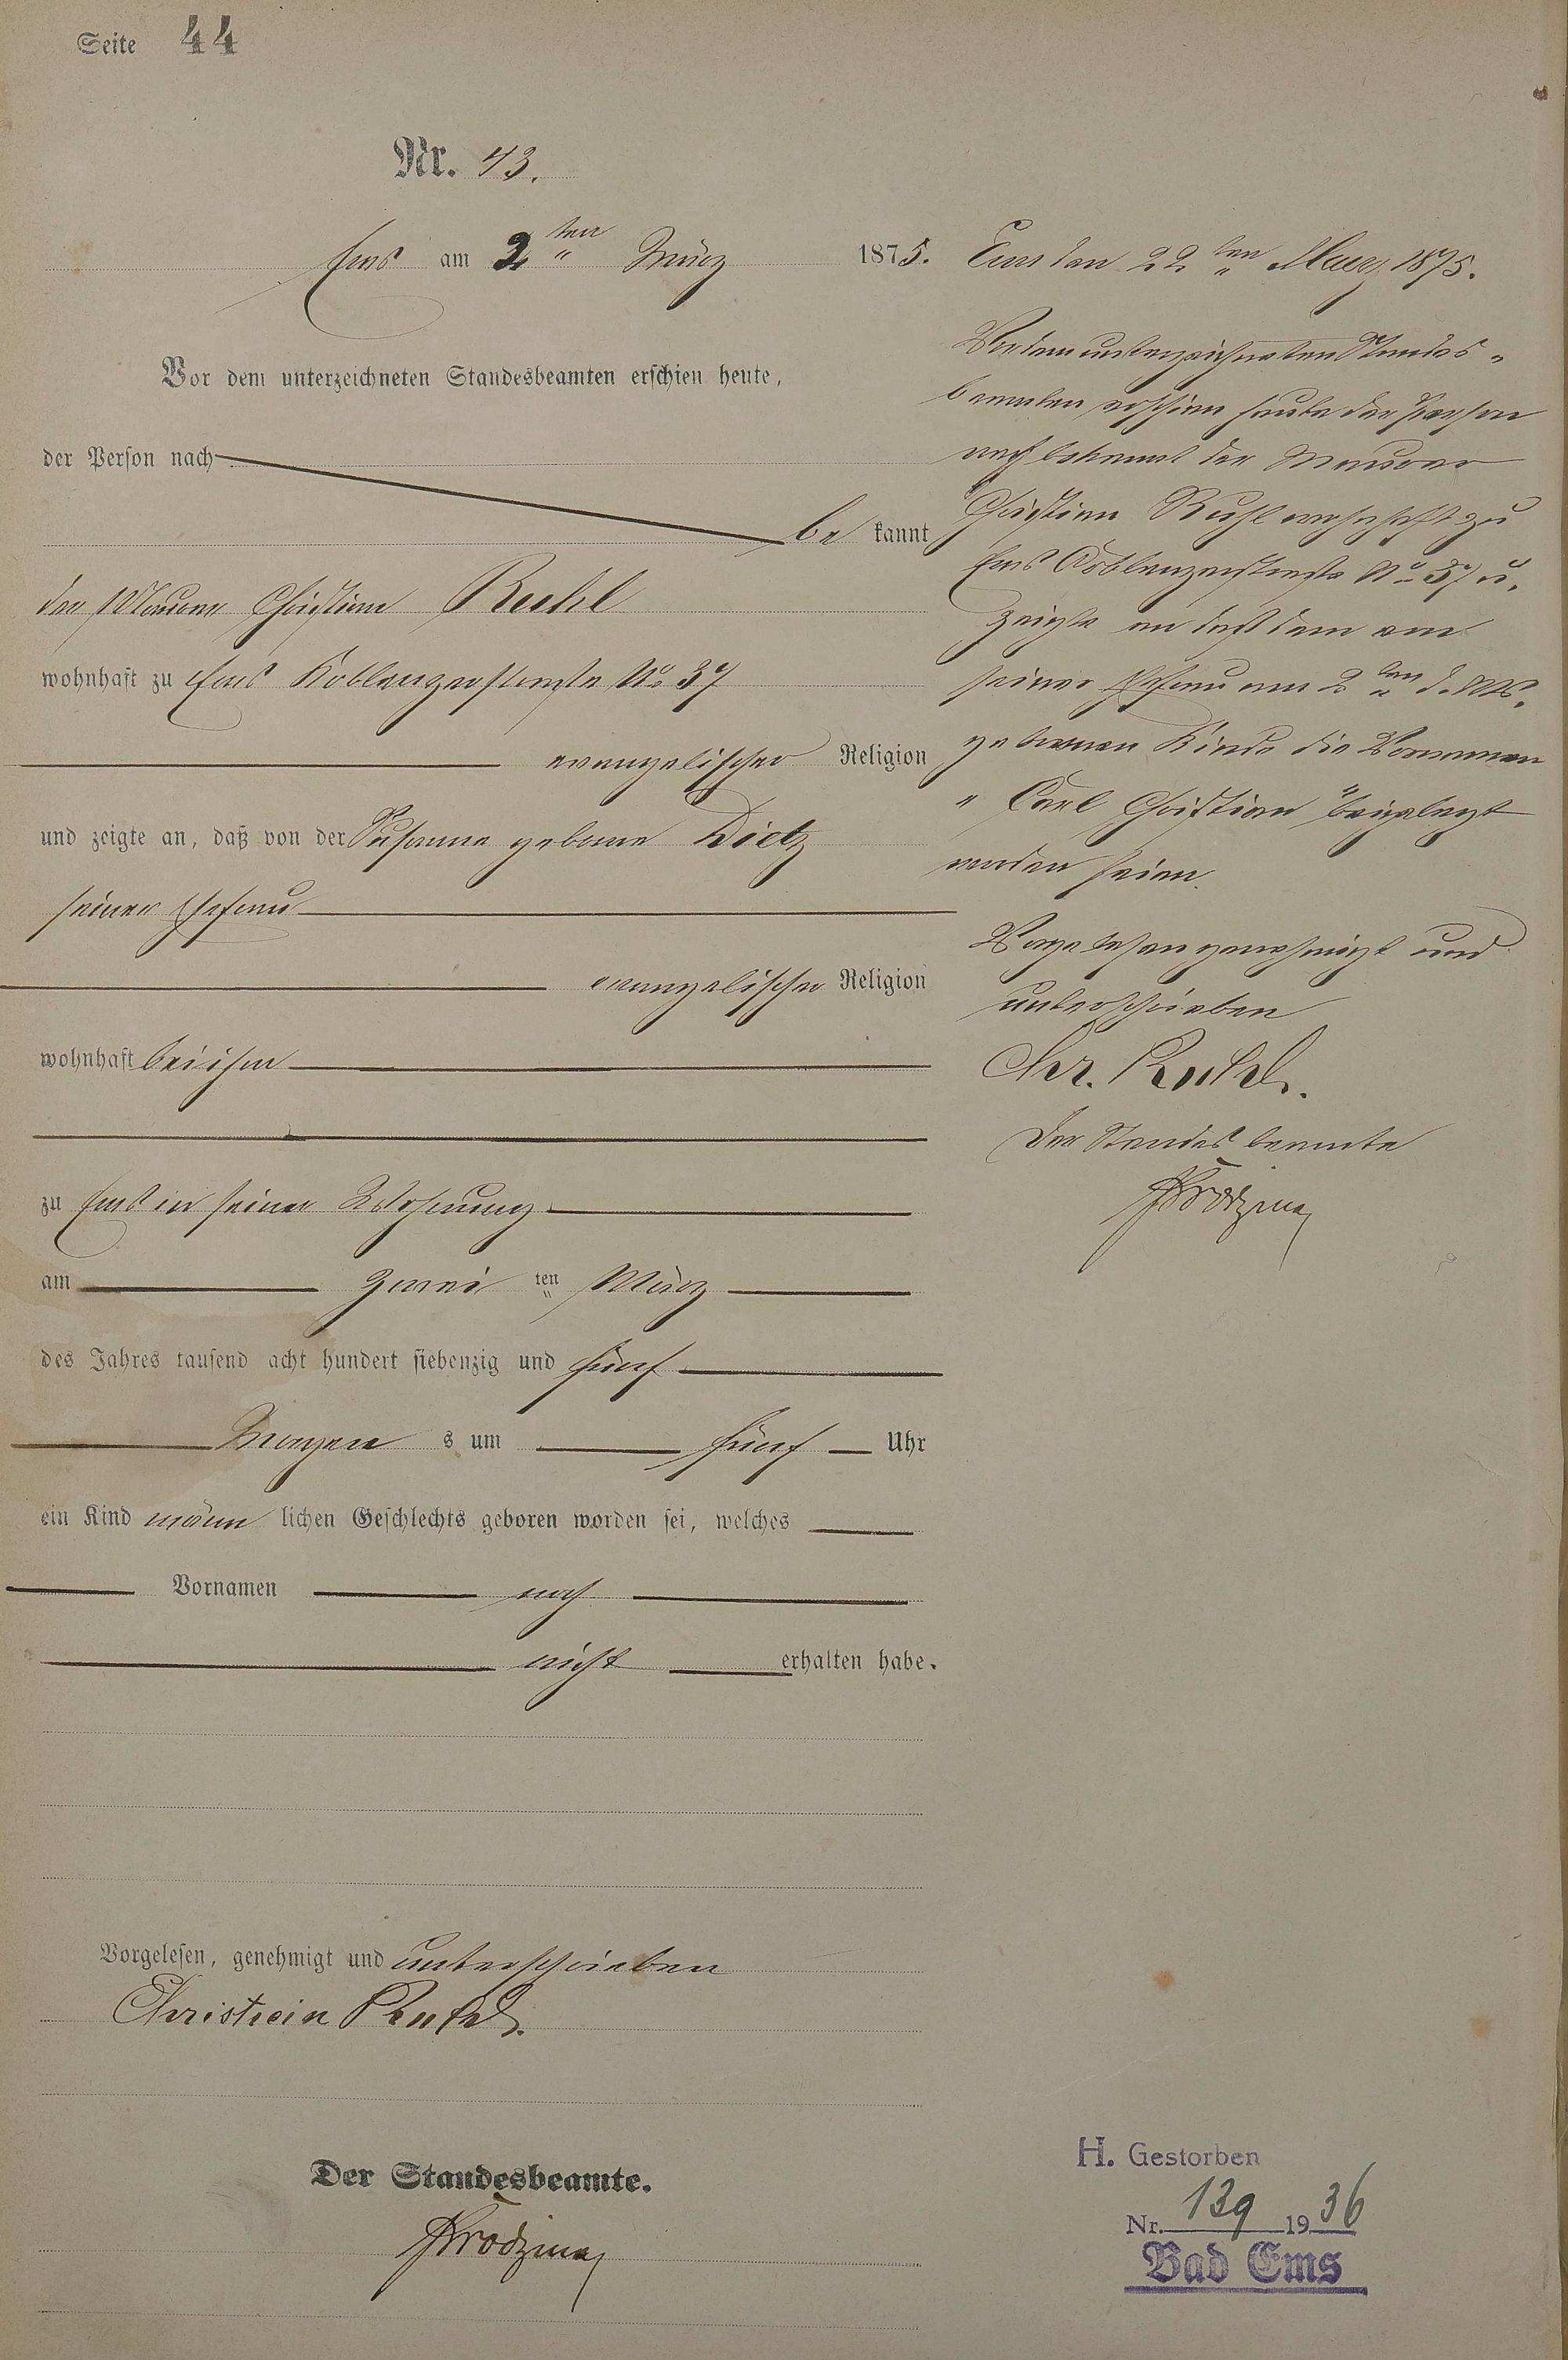 Seite 44
Nr. 43.
Ems am 2 ten März 1875.
Vor dem unterzeichneten Standesbeamten erschien heute,
der Person nach
be kannt
der Maurer Christian Ruhl
wohnhaft zu Ems Koblenzerstraße No 37
evangelischer Religion
und zeigte an, daß von der Susanna geborne Dietz
seiner Ehefrau
evangelischer Religion
wohnhaft bei ihm
zu Ems in seiner Wohnung
am zwei ten März
des Jahres tausend acht hundert siebenzig und fünf
Morgen s um fünf Uhr
ein Kind männ lichen Geschlechts geboren worden sei, welches
Vornamen noch
nicht erhalten habe.
Vorgelesen, genehmigt und unterschrieben
Christian Ruhl.
Der Standesbeamte.
Ems den 22 ten Maerz 1875.
Vor dem unterzeichneten Standes-
beamten erschien heute der Person
nach bekannt der Maurer
Christian Ruhl wohnhaft zu
Ems Coblenzerstraße No 37 u.
zeigte an daß dem von
seiner Ehefrau am 2 ten d. Mts.
gebornen Kinde die Vornamen
"Carl Christian" beigelegt
worden seien.
Vorgelesen genehmigt und
unterschrieben
Chr. Ruhl.
Der Standesbeamte
H. Gestorben
Nr. 139 1936
Bad Ems